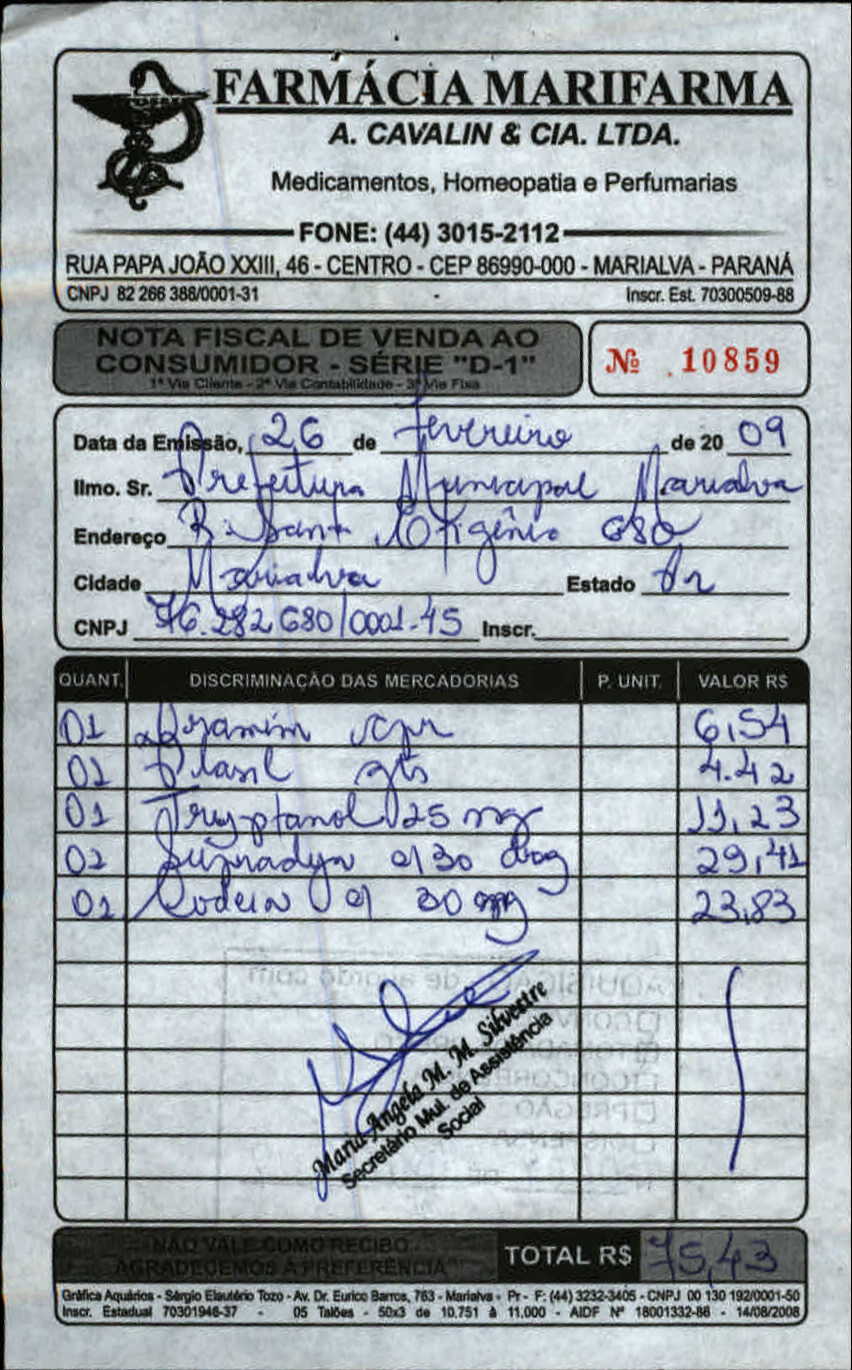 FARMÁCIA MARIFARMA
A. CAVALIN & CIA. LTDA.
Medicamentos, Homeopatia e Perfumarias
FONE: (44) 3015-2112
RUA PAPA JOÃO XXIII, 46 - CENTRO - CEP 86990-000 - MARIALVA - PARANÁ
CNPJ 82 266 388/0001-31 Inscr. Est. 70300509-88
NOTA FISCAL DE VENDA AO
CONSUMIDOR - SÉRIE "D-1"
1ª Via Cliente - 2ª Via Contabilidade - 3ª Via Fixa
Nº 10859
Data da Emissão, 26 de fevereiro de 20 09
Ilmo. Sr. Prefeitura Municipal Marialva
Endereço R. Santa Efigênia 680
Cidade Marialva Estado Pr
CNPJ 76.282 680/0001-45 Inscr.
QUANT. DISCRIMINAÇÃO DAS MERCADORIAS P. UNIT. VALOR R$
01 Dramin 6,54
01 Plasil gts 4.42
01 Tryptanol 25 mg 11,23
01 Supradyn c/30 drag 29,41
01 Codein c/ 30 mg 23,83
AQUISIÇÃO de acordo com
Maria Angela M. M. Silvestre
Secretário Mul. de Assistência
Social
NÃO VALE COMO RECIBO -
AGRADECEMOS A PREFERÊNCIA
TOTAL R$ 75,43
Gráfica Aquários - Sérgio Elautério Tozo - Av. Dr. Eurico Barros, 763 - Marialva - Pr - F: (44) 3232-3405 - CNPJ 00 130 192/0001-50
Inscr. Estadual 70301946-37 - 05 Talões - 50x3 de 10.751 à 11.000 - AIDF Nº 18001332-86 - 14/08/2008